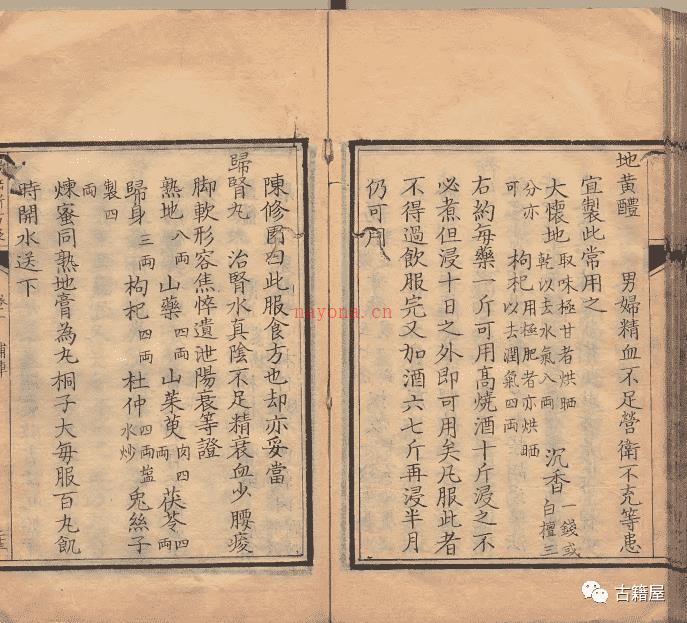 地黃醴　男婦精血不足營衛不充等患
宜製此常用之
大懷地 取味極甘者烘晒乾以去水氣八両 沉香 一錢或白檀三
分亦可 枸杞 用極肥者亦烘晒以去潤氣四両
右約每藥一斤可用高燒酒十斤浸之不
必煮但浸十日之外即可用矣凡服此者
不得過飲服完又加酒六七斤再浸半月
仍可用
陳修園曰此服食方也却亦妥當
歸腎丸　治腎水真陰不足精衰血少腰痠
脚軟形容焦悴遺泄陽衰等證
熟地 八両 山藥 四両 山茱萸 肉四両 茯苓 四両
歸身 三両 枸杞 四両 杜仲 四両盐水炒 兔絲子
製四両
煉蜜同熟地膏為丸桐子大每服百丸飢
時開水送下
nayona.cn
古籍屋